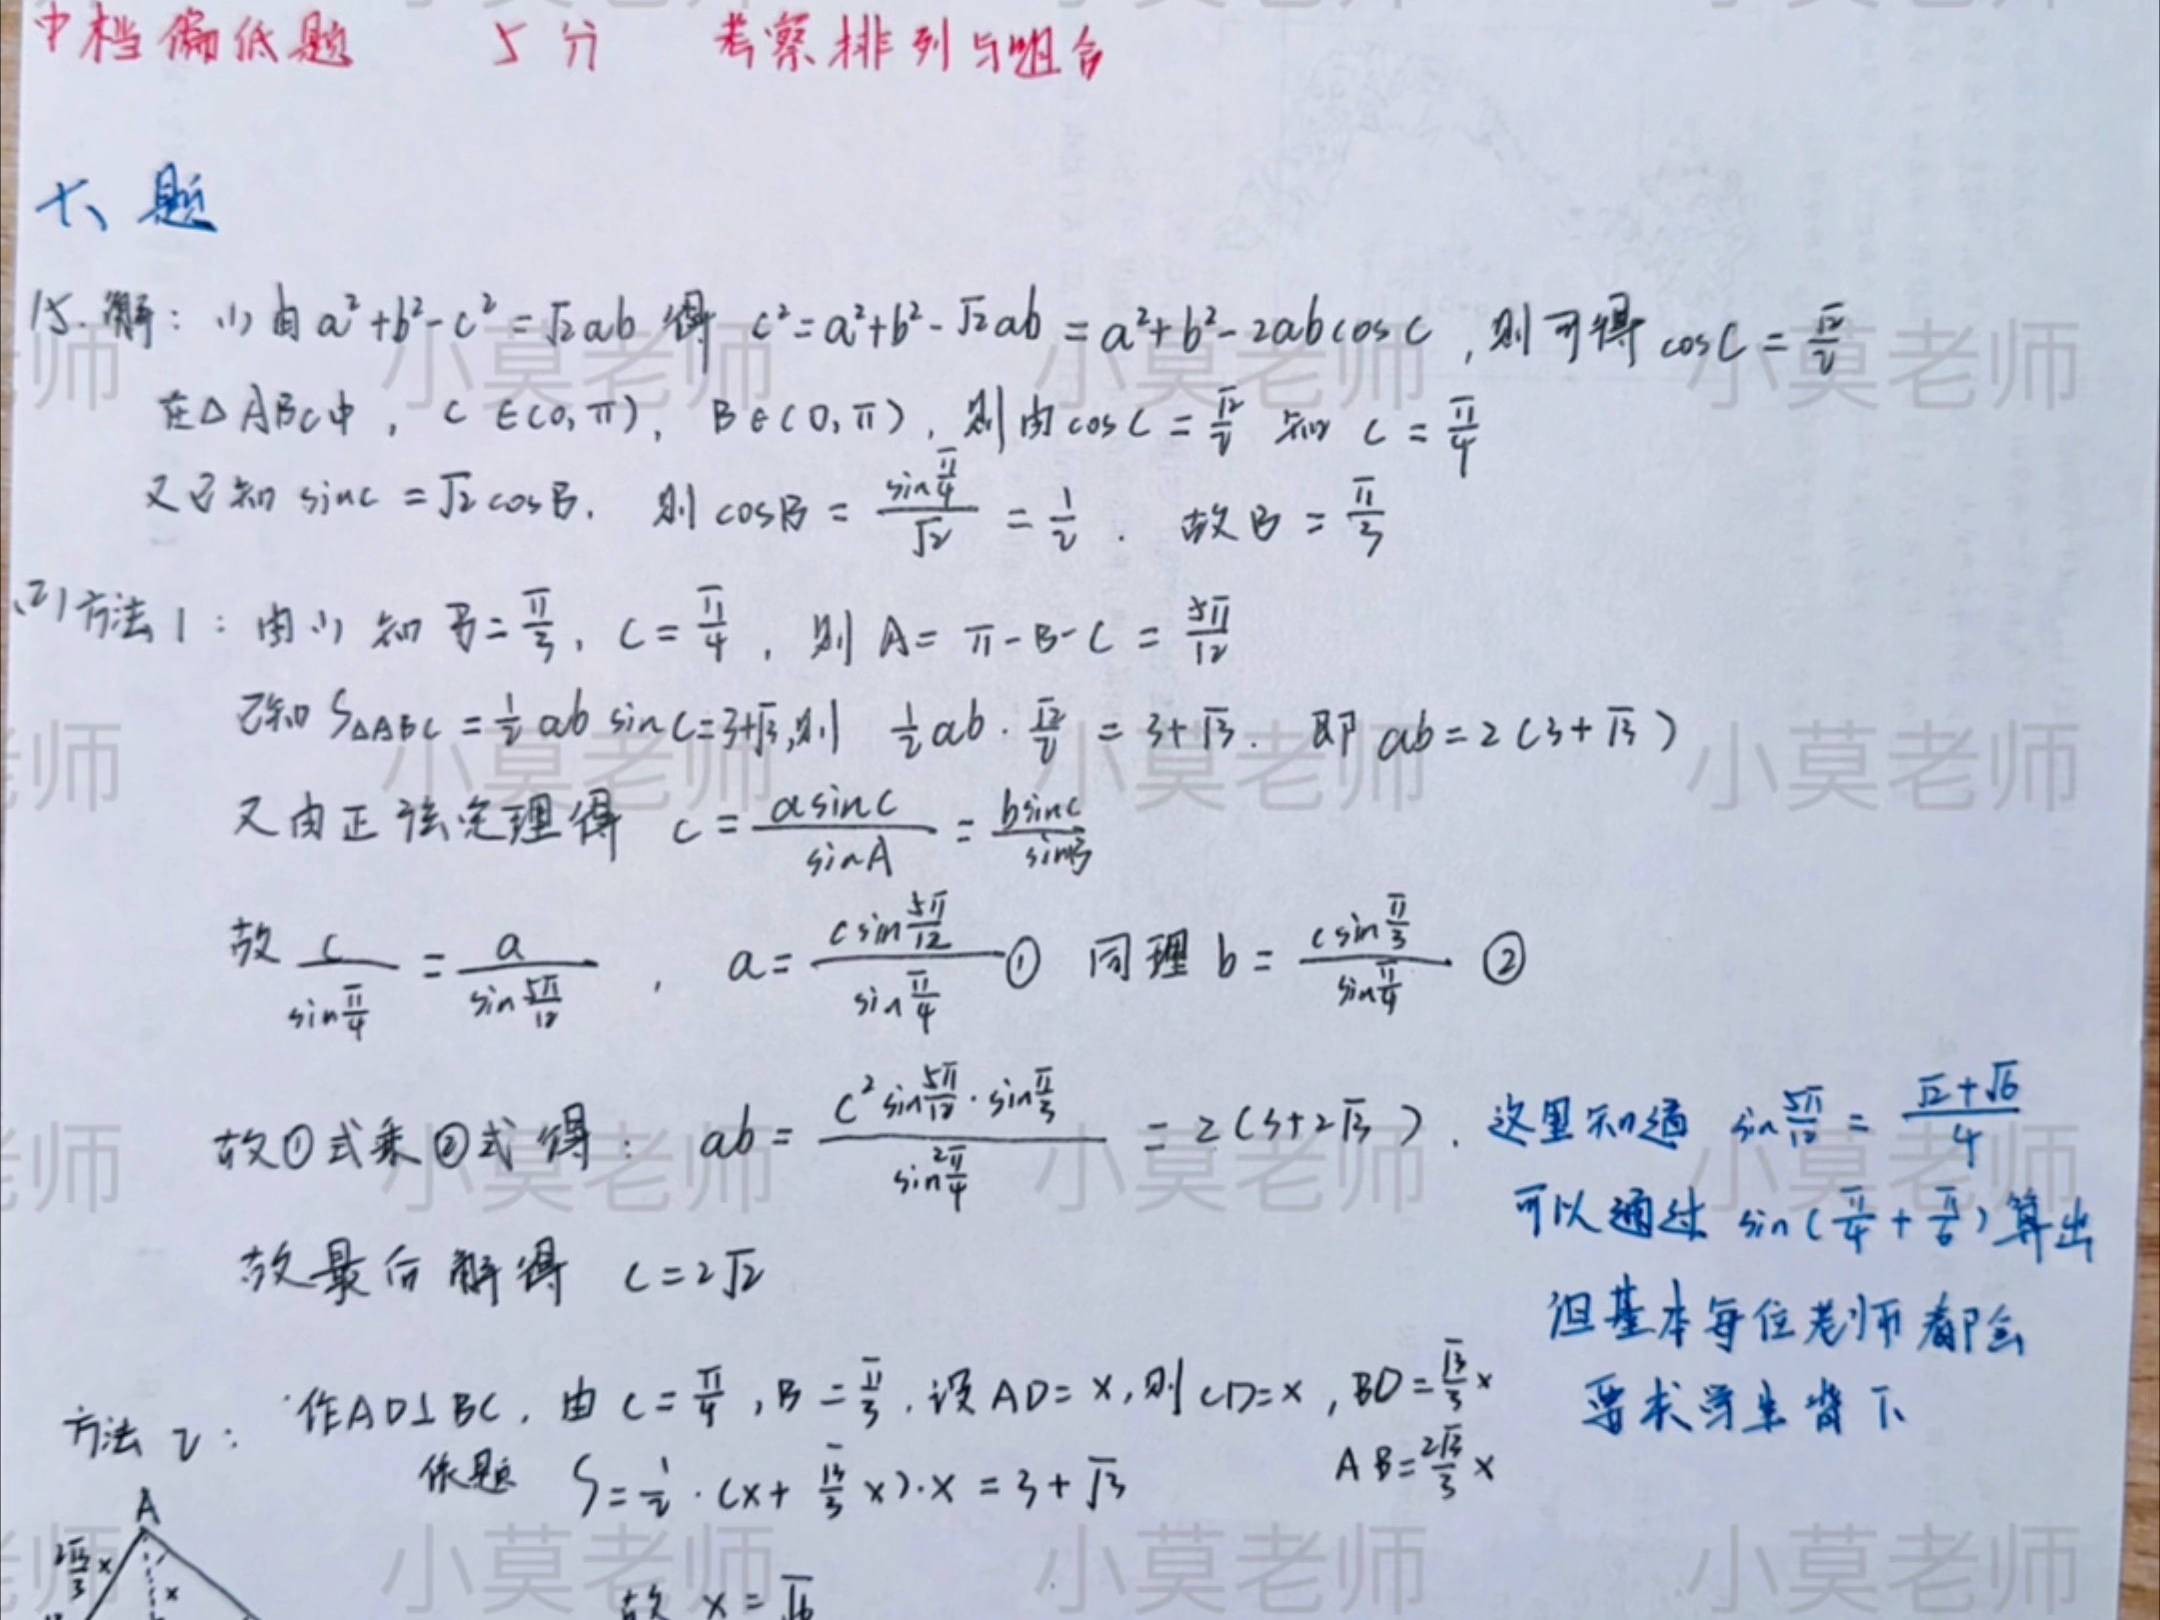 中档偏低题 5分 考察排列与组合
大题
15.解：(1)由a²+b²-c²=√2ab 得 c²=a²+b²-√2ab=a²+b²-2abcosC，则可得cosC=√2/2
在△ABC中，C∈(0,π)，B∈(0,π)，则由cosC=√2/2 知 C=π/4
又已知 sinC=√2cosB. 则 cosB=sin(π/4)/√2=1/2. 故B=π/3
(2)方法1：由(1)知 B=π/3，C=π/4，则 A=π-B-C=5π/12
已知 S△ABC=1/2 ab sinC=3+√3,则 1/2 ab·√2/2=3+√3. 即 ab=2(3+√3)
又由正弦定理得 c=asinC/sinA=bsinC/sinB
故 c/sin(π/4)=a/sin(5π/12)，a=csin(5π/12)/sin(π/4) ① 同理 b=csin(π/3)/sin(π/4) ②
故①式乘②式得：ab=c²sin(5π/12)·sin(π/3)/sin²(π/4)=2(3+2√3).
这里知道 sin(5π/12)=(√2+√6)/4
可以通过 sin(π/4+π/6)算出
但基本每位老师都会
要求学生背下
故最后解得 c=2√2
方法2：作AD⊥BC，由C=π/4，B=π/3，设AD=x，则CD=x，BD=√3/3 x
AB=2√3/3 x
依题 S=1/2·(x+√3/3 x)·x=3+√3
A
2√3/3 x
x
故 x=√6
小莫老师 小莫老师 小莫老师 小莫老师
小莫老师 小莫老师 小莫老师 小莫老师
小莫老师 小莫老师 小莫老师 小莫老师
小莫老师 小莫老师 小莫老师 小莫老师